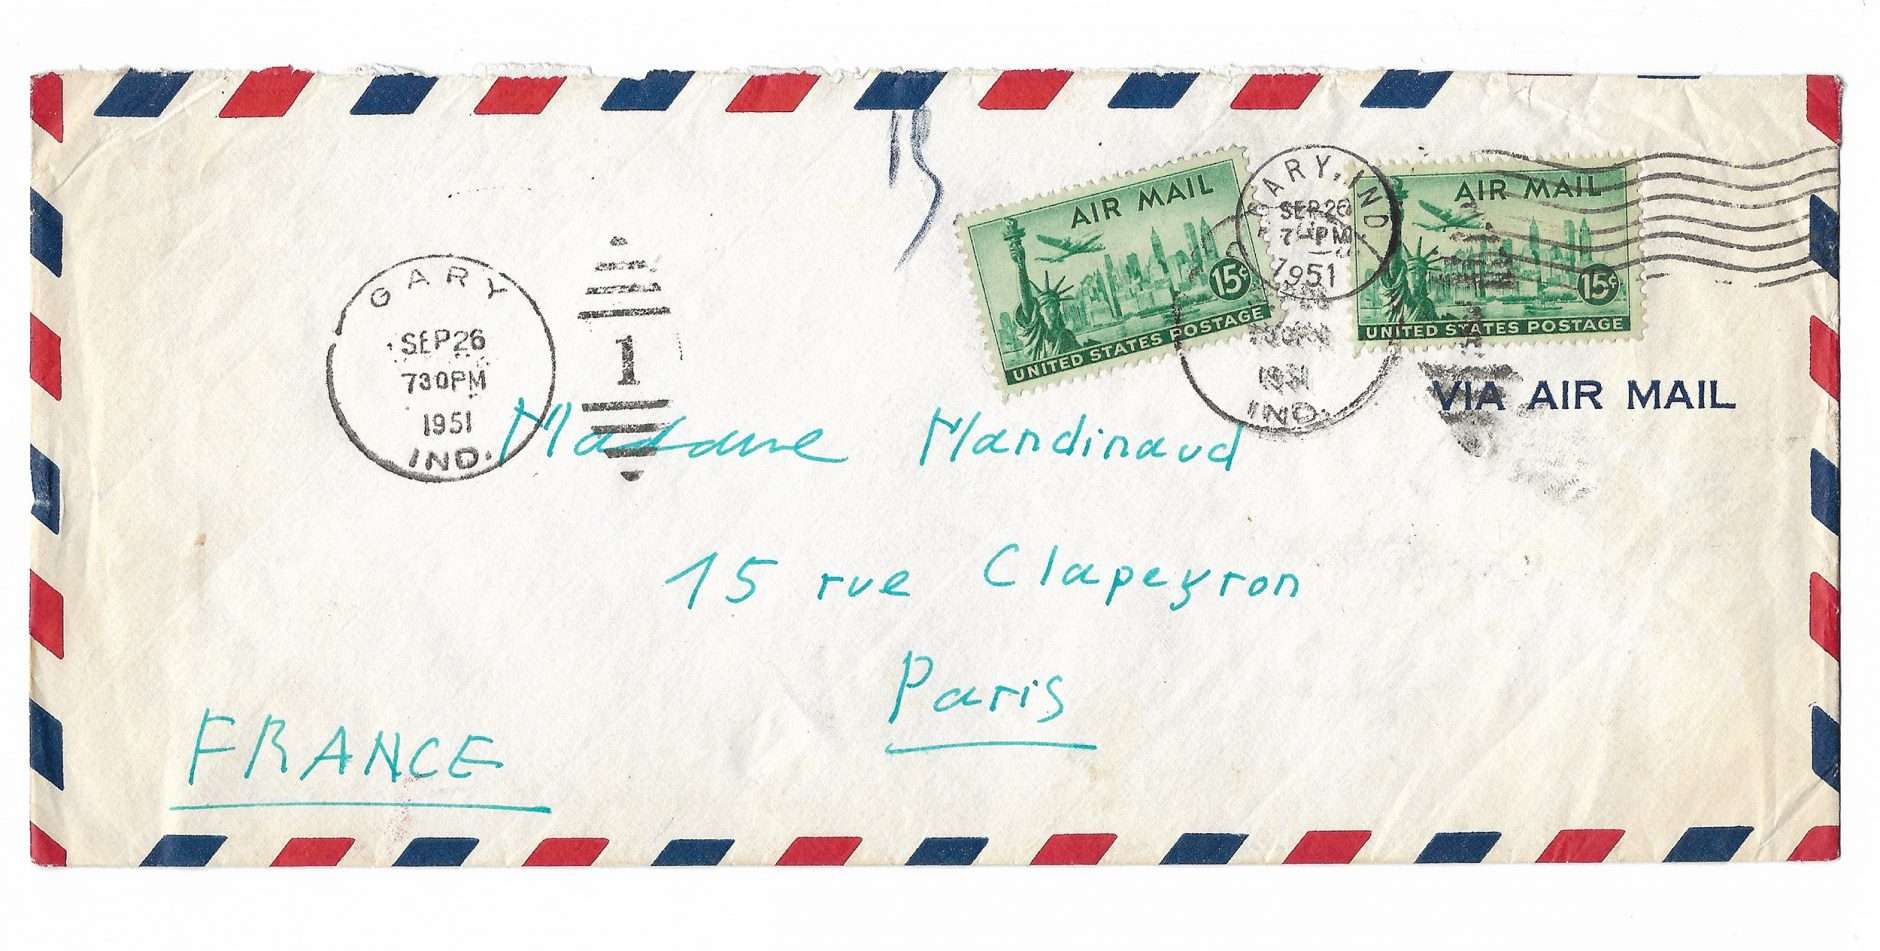 GARY
SEP 26
730PM
1951
IND.
1
AIR MAIL
15¢
UNITED STATES POSTAGE
GARY, IND
SEP 26
7 PM
1951
AIR MAIL
15¢
UNITED STATES POSTAGE
1951
IND.
VIA AIR MAIL
Madame Mandinaud
15 rue Clapeyron
Paris
FRANCE